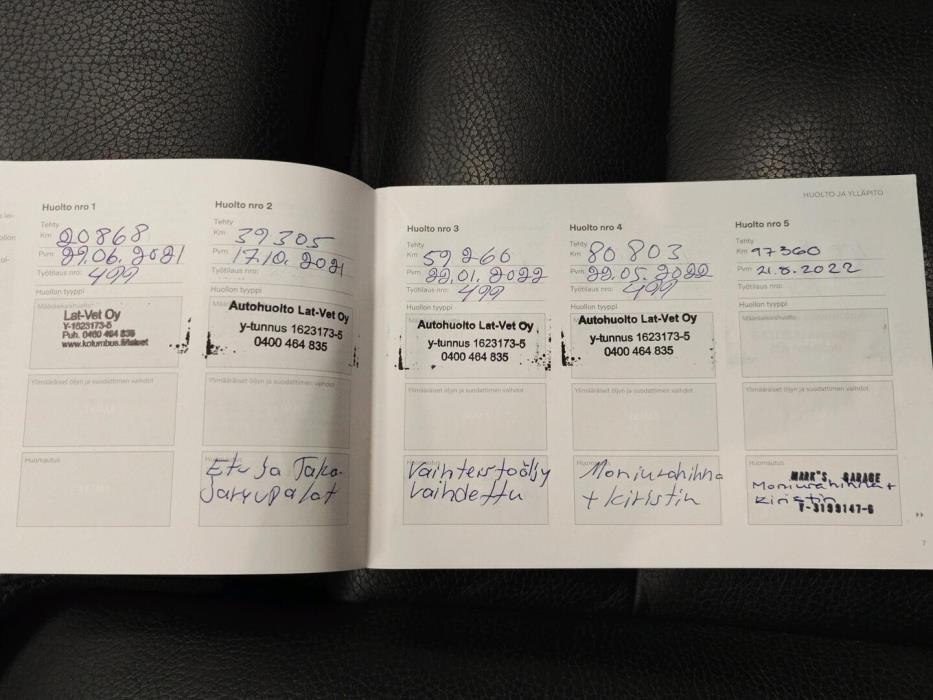 HUOLTO JA YLLÄPITO
Huolto nro 1
Tehty
Km 20868
Pvm 29.06.2021
Työtilaus nro: 499
Huollon tyyppi
Määräaikaishuolto
Lat-Vet Oy
Y-1623173-5
Puh. 0400 464 835
www.kotumbus.fi/latvet
Ylimääräiset öljyn ja suodattimen vaihdot
Huomautus
Huolto nro 2
Tehty
Km 39305
Pvm 17.10.2021
Työtilaus nro:
Huollon tyyppi
Autohuolto Lat-Vet Oy
y-tunnus 1623173-5
0400 464 835
Ylimääräiset öljyn ja suodattimen vaihdot
Huomautus
Etu Ja Taka-
Jarrupalat
Huolto nro 3
Tehty
Km 59260
Pvm 22.01.2022
Työtilaus nro: 499
Huollon tyyppi
Autohuolto Lat-Vet Oy
y-tunnus 1623173-5
0400 464 835
Ylimääräiset öljyn ja suodattimen vaihdot
Huomautus
Vaihteistoöljy
vaihdettu
Huolto nro 4
Tehty
Km 80803
Pvm 22.05.2022
Työtilaus nro: 499
Huollon tyyppi
Autohuolto Lat-Vet Oy
y-tunnus 1623173-5
0400 464 835
Ylimääräiset öljyn ja suodattimen vaihdot
Huomautus
Moniurahihna
+ kiristin
Huolto nro 5
Tehty
Km 97360
Pvm 21.8.2022
Työtilaus nro:
Huollon tyyppi
Määräaikaishuolto
Ylimääräiset öljyn ja suodattimen vaihdot
Huomautus
MARK"S GARAGE
Moniurahihna +
Kiristin
Y-3199147-6
7